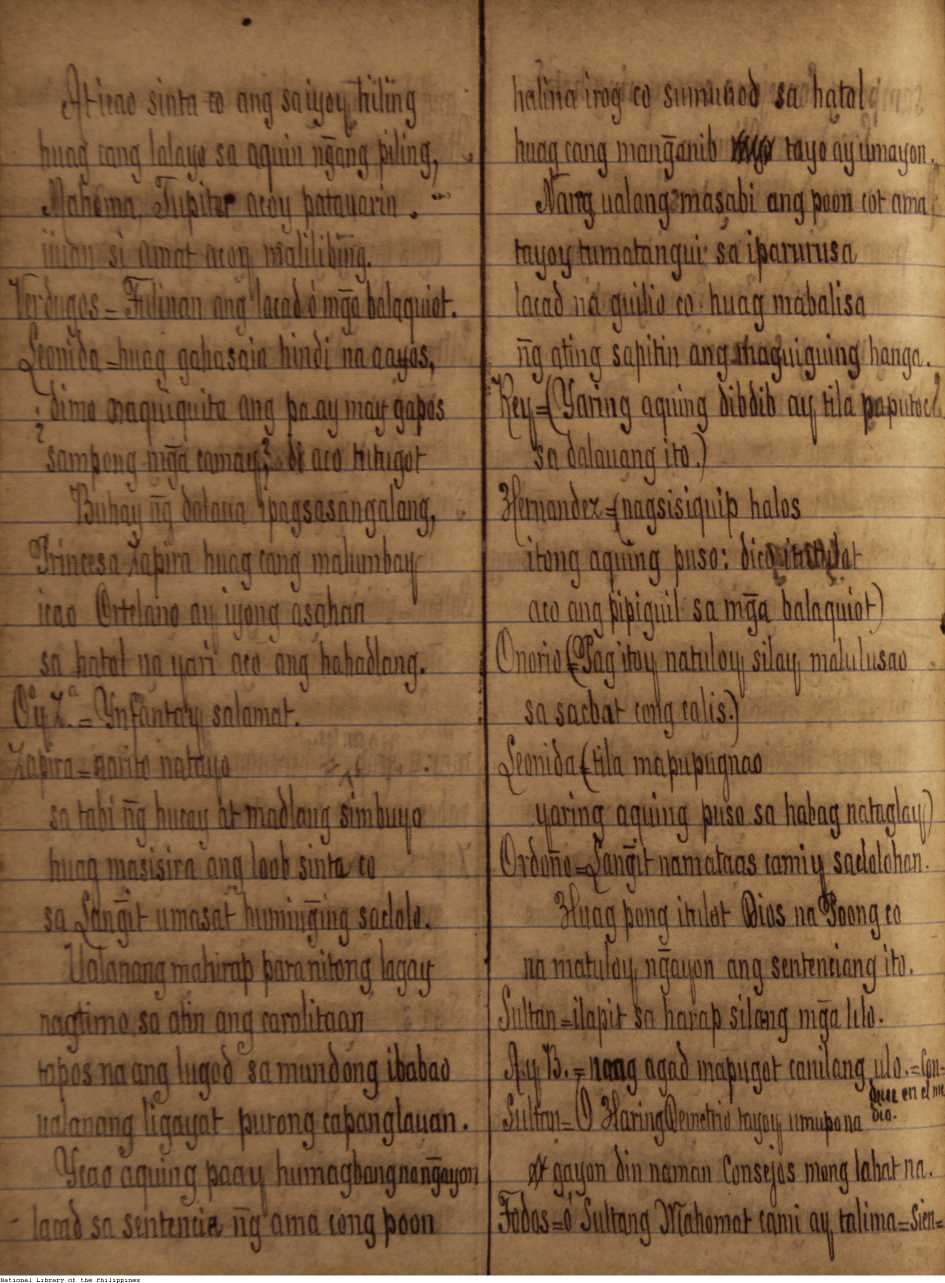 At icao sinta co ang saiyoy hiling
huag cang lalayo sa aquin ng̃ang piling,
Mahoma, Jupiter acoy patauarin
iiuan si amat acoy malilibing.
Verdugos = Tulinan ang lacad ó mg̃a balaquiot.
Leonida = huag gahasain hindi na aayos,
¿dimo naquiquita ang pa ay may gapos
sampong mg̃a camay? di aco huhigot
Buhay ng̃ dalaua ipagsasangalang,
Princesa Xapira huag cang malumbay
icao Ortelano ay iyong asahan
sa hatol na yari aco ang hahadlang.
O.ª y Z.ª = Ynfanta'y salamat.
Zapira = narito natayo
sa tabi ng̃ hucay at madlang simbuyo
huag masisira ang loob sinta co
sa Lang̃it umasa't huming̃ing saclolo.
Ualanang mahirap para nitong lagay
nagtimo sa atin ang carolitaan
tapos na ang lugod sa mundong ibabao
ualanang ligayat purong capanglauan.
Ycao aquing paay humagbang nang̃ayon
lacad sa sentencia ng̃ ama cong poon
halina irog co sumunod sa hatol
huag cang mang̃anib tayo ay umayon.
Nang ualang masabi ang poon cot ama
tayoy tumatangui sa iparurusa
lacad na guilio co huag mabalisa
ng̃ ating sapitin ang maguiguing hanga.
Key = (Yaring aquing dibdib ay tila paputoc
sa dalauang ito.)
Hernandez = (nagsisiquip halos
itong aquing puso: dico
aco ang pipiguil sa mg̃a balaquiot)
Onorio (= Pag itoy natuloy silay malulusao
sa sacbat cong calis.)
Leonida (= tila mapupugnao
yaring aquing puso sa habag nataglay)
Ordoño = Lang̃it namataas camiy saclolohan.
Huag pong itulot Dios na Poong co
na matuloy ng̃ayon ang sentenciang ito.
Sultan = ilapit sa harap silang mg̃a lilo.
A. y B. = nang agad mapugot canilang ulo. = Con-
duce en el me
dio.
Sultan = O Haring Demetrio tayoy umupo na
gayon din naman Consejos mong lahat na.
Todos = ó Sultang Mahomat cami ay talima = Sien-